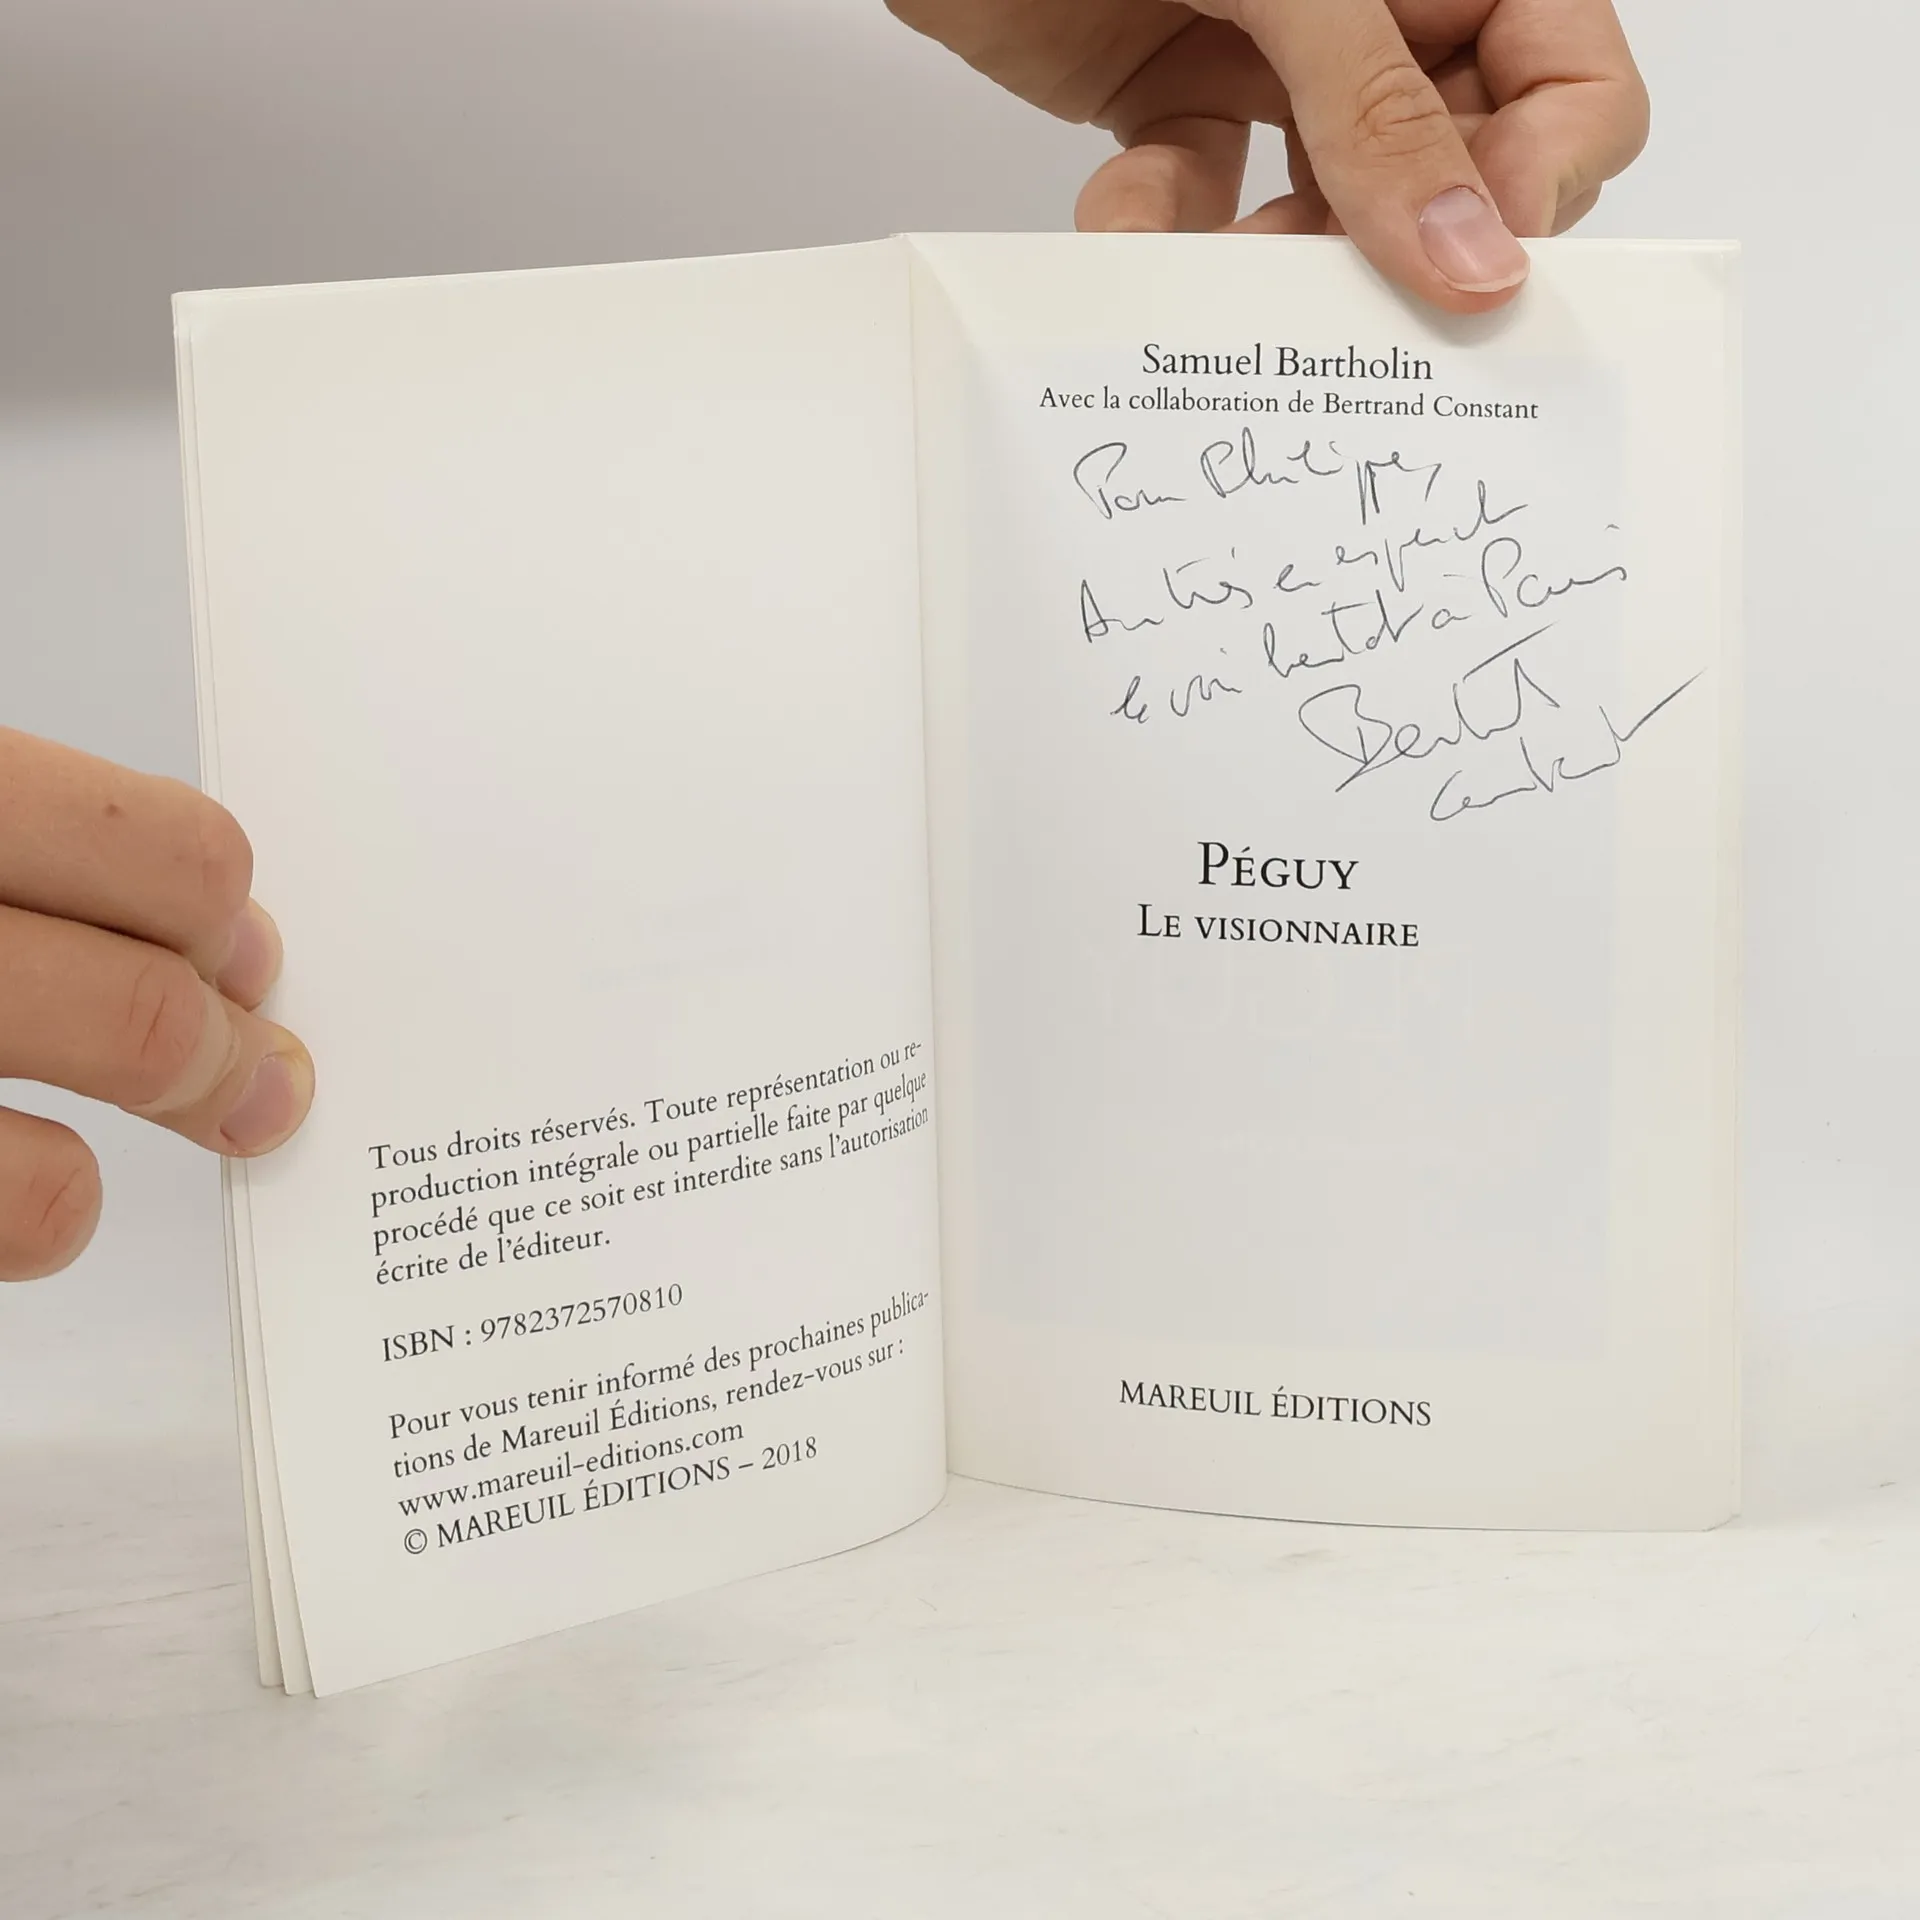 Tous droits réservés. Toute représentation ou re-
production intégrale ou partielle faite par quelque
procédé que ce soit est interdite sans l'autorisation
écrite de l'éditeur.
ISBN : 9782372570810
Pour vous tenir informé des prochaines publica-
tions de Mareuil Éditions, rendez-vous sur :
www.mareuil-editions.com
© MAREUIL ÉDITIONS – 2018
Samuel Bartholin
Avec la collaboration de Bertrand Constant
Pour Philippe,
en espérant
le voir bientôt à Paris
PÉGUY
LE VISIONNAIRE
MAREUIL ÉDITIONS